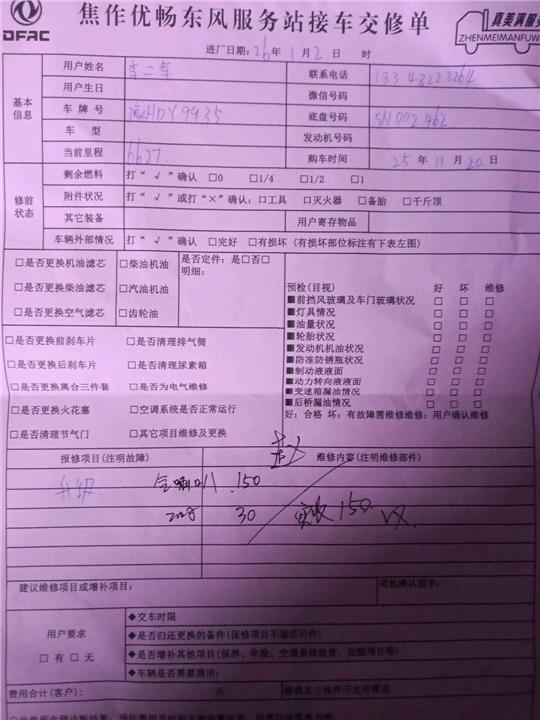 DFAC
焦作优畅东风服务站接车交修单
真美满服
ZHENMEIMANFUW
进厂日期：26年1月2日 时
基本信息
用户姓名
联系电话
用户生日
微信号码
车牌号 豫HDY9935
底盘号码 SN002462
车型
发动机号码
当前里程 6627.
购车时间 25年11月20日
修前状态
剩余燃料 打“√”确认 □0 □1/4 □1/2 □1
附件状况 打“√”或打“×”确认：口工具 □灭火器 □备胎 □千斤顶
其它装备
用户寄存物品
车辆外部情况 打“√”确认 □完好 □有损坏 (有损坏部位标注有下表左图)
□是否更换机油滤芯 □柴油机油
□是否更换柴油滤芯 □汽油机油
□是否更换空气滤芯 □齿轮油
是否定件：是□否□
明细：
□是否更换前刹车片 □是否清理排气筒
□是否更换后刹车片 □是否清理尿素箱
□是否更换离合三件套 □是否为电气维修
□是否更换火花塞 □空调系统是否正常运行
□是否清理节气门 □其它项目维修及更换
预检(目视) 好 坏 维修
■前挡风玻璃及车门玻璃状况 □ □ □
■灯具情况 □ □ □
■油量状况 □ □ □
■轮胎状况 □ □ □
■发动机机油状况 □ □ □
■防冻防锈瓶状况 □ □ □
■制动液液面 □ □ □
■动力转向液液面 □ □ □
■变速箱漏油情况 □ □ □
■后桥漏油情况 □ □ □
好：合格 坏：有故障需维修维修：用户确认维修
报修项目(注明故障)
维修内容(注明维修部件)
升级
150
30
实收150
建议维修项目或增补项目：
司机确认签字：
用户要求
□有□无
◆交车时限
◆是否归还更换的备件(保修项目不退还旧件)
◆是否增补其他项目(保养、年检、空调系统检查、加装项目等)
◆车辆是否需要清洁：
费用合计(客户)： 元